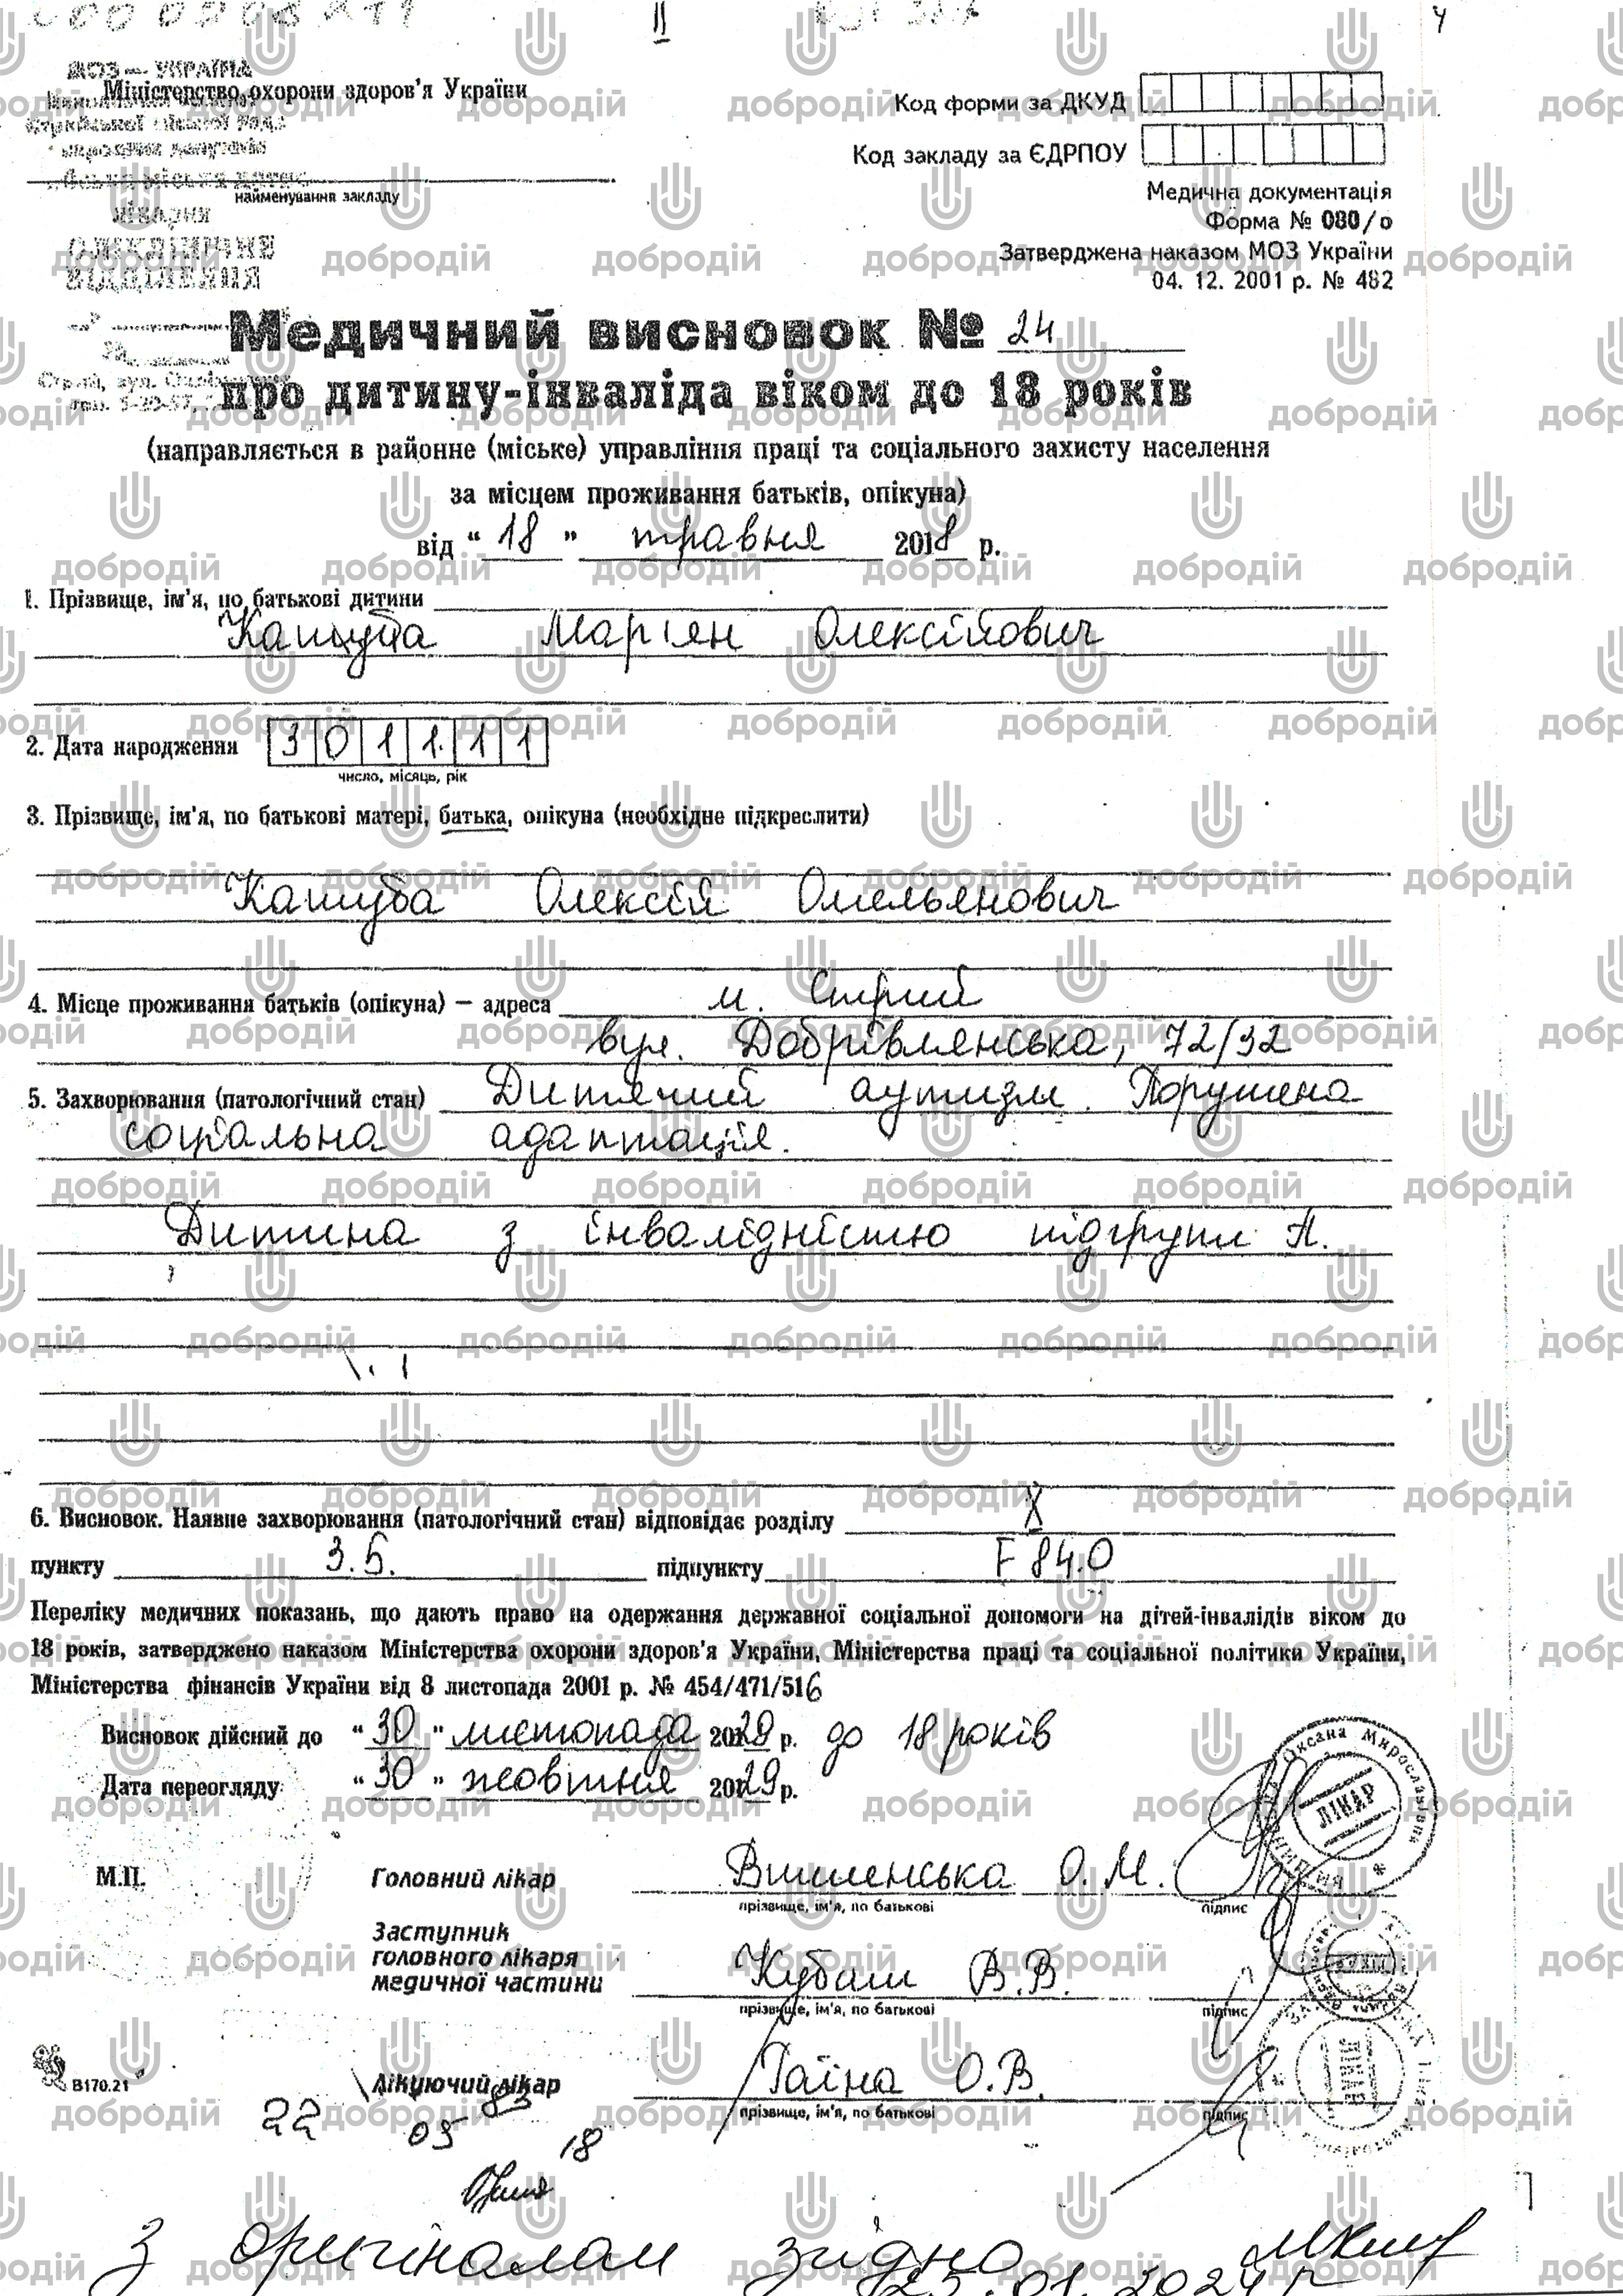 II
МОЗ — УКРАЇНА
Міністерство охорони здоров'я України
найменування закладу
лікарня
ВІДДІЛЕННЯ
Код форми за ДКУД
Код закладу за ЄДРПОУ
Медична документація
Форма № 080/о
Затверджена наказом МОЗ України
04. 12. 2001 р. № 482
Медичний висновок № 24
про дитину-інваліда віком до 18 років
(направляється в районне (міське) управління праці та соціального захисту населення
за місцем проживання батьків, опікуна)
від “ 18 ” травня 2018 р.
1. Прізвище, ім'я, по батькові дитини
Кашуба Маріян Олексійович
2. Дата народження 3 0 1 1 1 1
число, місяць, рік
3. Прізвище, ім'я, по батькові матері, батька, опікуна (необхідне підкреслити)
Кашуба Олексій Омельянович
4. Місце проживання батьків (опікуна) – адреса м. Стрий
вул. Добрівлянська, 72/32
5. Захворювання (патологічний стан) Дитячий аутизм. Порушена
соціальна адаптація.
Дитина з інвалідністю підгрупи А.
6. Висновок. Наявне захворювання (патологічний стан) відповідає розділу X
пункту 3.5. підпункту F 84.0
Переліку медичних показань, що дають право на одержання державної соціальної допомоги на дітей-інвалідів віком до
18 років, затверджено наказом Міністерства охорони здоров'я України, Міністерства праці та соціальної політики України,
Міністерства фінансів України від 8 листопада 2001 р. № 454/471/516
Висновок дійсний до “ 30 ” листопада 2029 р. до 18 років
Дата переогляду “ 30 ” жовтня 2029 р.
Оксана Мирославівна
ЛІКАР
М.П. Головний лікар Вишенська О.М.
прізвище, ім'я, по батькові підпис
Заступник
головного лікаря
медичної частини Кубаш В.В.
прізвище, ім'я, по батькові підпис
В170.21
Лікуючий лікар Гаїна О.В.
прізвище, ім'я, по батькові підпис
ЛІКАР
22 05 18
З оригіналом згідно
25.01.2024 р
добродій